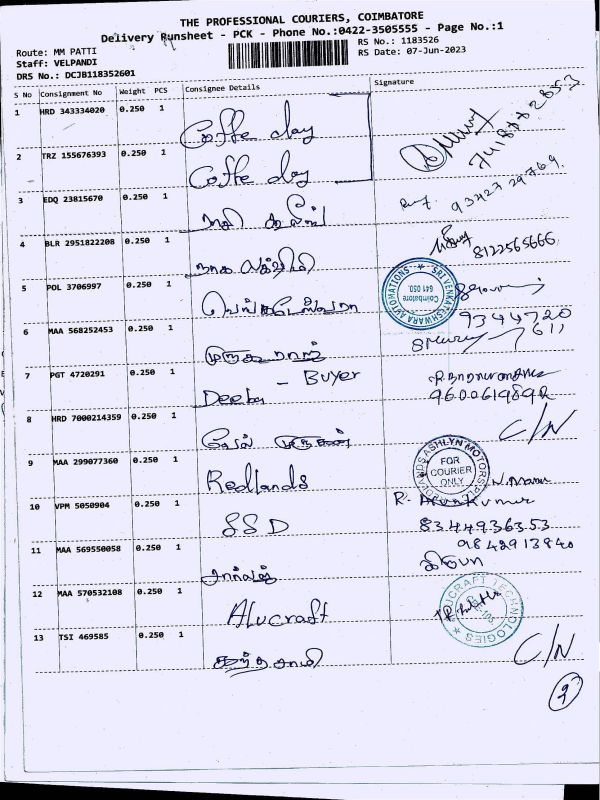 THE PROFESSIONAL COURIERS, COIMBATORE
Delivery Runsheet - PCK - Phone No.:0422-3505555 - Page No.:1
Route: MM PATTI
RS No.: 1183526
Staff: VELPANDI
RS Date: 07-Jun-2023
DRS No.: DCJB118352601
S No Consignment No Weight PCS Consignee Details Signature
1 HRD 343334020 0.250 1 Coffe day
2 TRZ 155676393 0.250 1 Coffe day
3 EDQ 23815670 0.250 1 93427 29769
4 BLR 2951822208 0.250 1 8122565666
5 POL 3706997 0.250 1 வெங்கடேஸ்வரா
SRI VENKATESHWARA AUTOMATIONS Coimbatore 641 050.
9344720
611
6 MAA 568252453 0.250 1
7 PGT 4720291 0.250 1 Deeba - Buyer
8 HRD 7000214359 0.250 1 வேல் முருகன் C/N
9 MAA 299077360 0.250 1 Redlands
REDLANDS ASHLYN MOTORS FOR COURIER ONLY
10 VPM 5050904 0.250 1 SSD R. Arunkumar
8344936353
9842913940
11 MAA 569550058 0.250 1
12 MAA 570532108 0.250 1 Alucraft
ALUCRAFT TECHNOLOGIES
13 TSI 469585 0.250 1 கந்தசாமி C/N